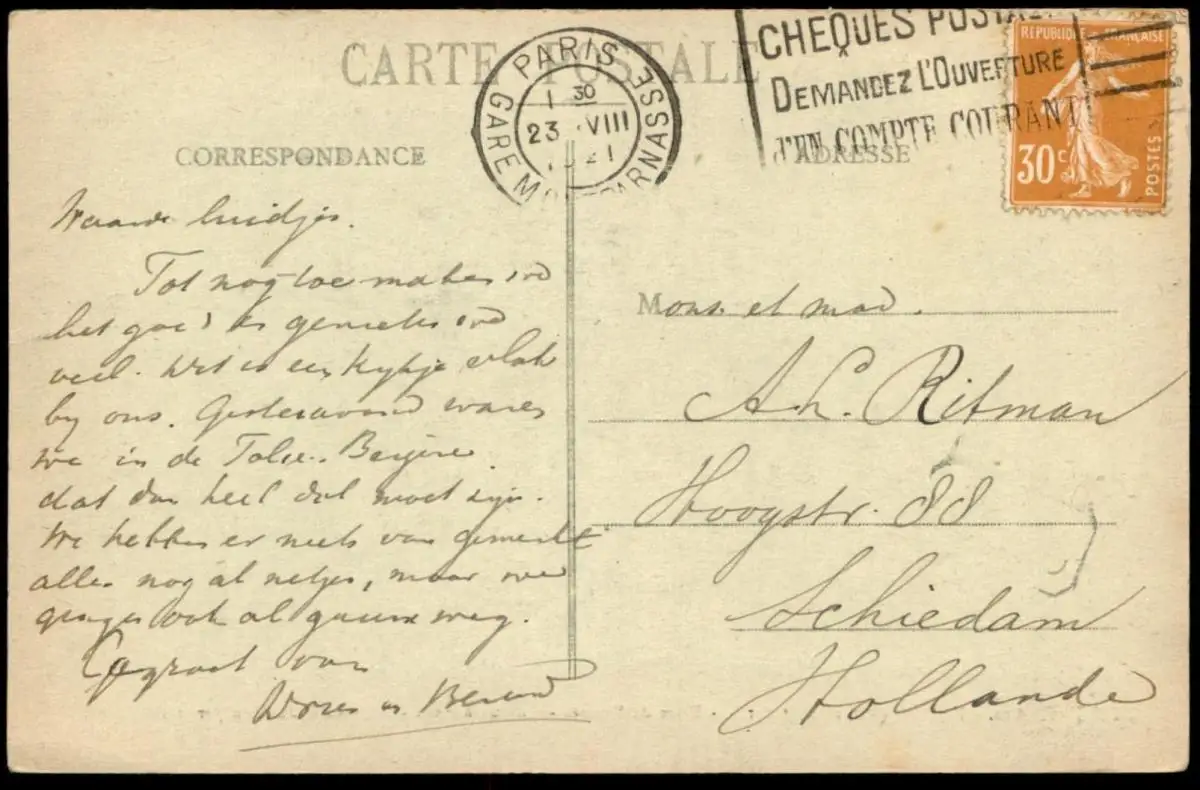 CARTE POSTALE
PARIS
GARE MONTPARNASSE
1 30
23 VIII
1921
CHEQUES POSTA
DEMANDEZ L'OUVERTURE
D'UN COMPTE COURANT
REPUBLIQUE FRANÇAISE
30c
POSTES
CORRESPONDANCE
ADRESSE
Waarde luidjes.
Tot nog toe maken we
het goed en genieten we
veel. Wel is een kijkje vlak
by ons. Gisteravond waren
we in de Folie-Bergère
dat dan heel dol moet zijn.
We hebben er niets van gemerkt
alles nog al netjes, maar we
gingen ook al gauw weg.
Gegroet van
en Berend
Mons. et mad.
A. L. Ritman
Hoogstr. 88
Schiedam
Hollande